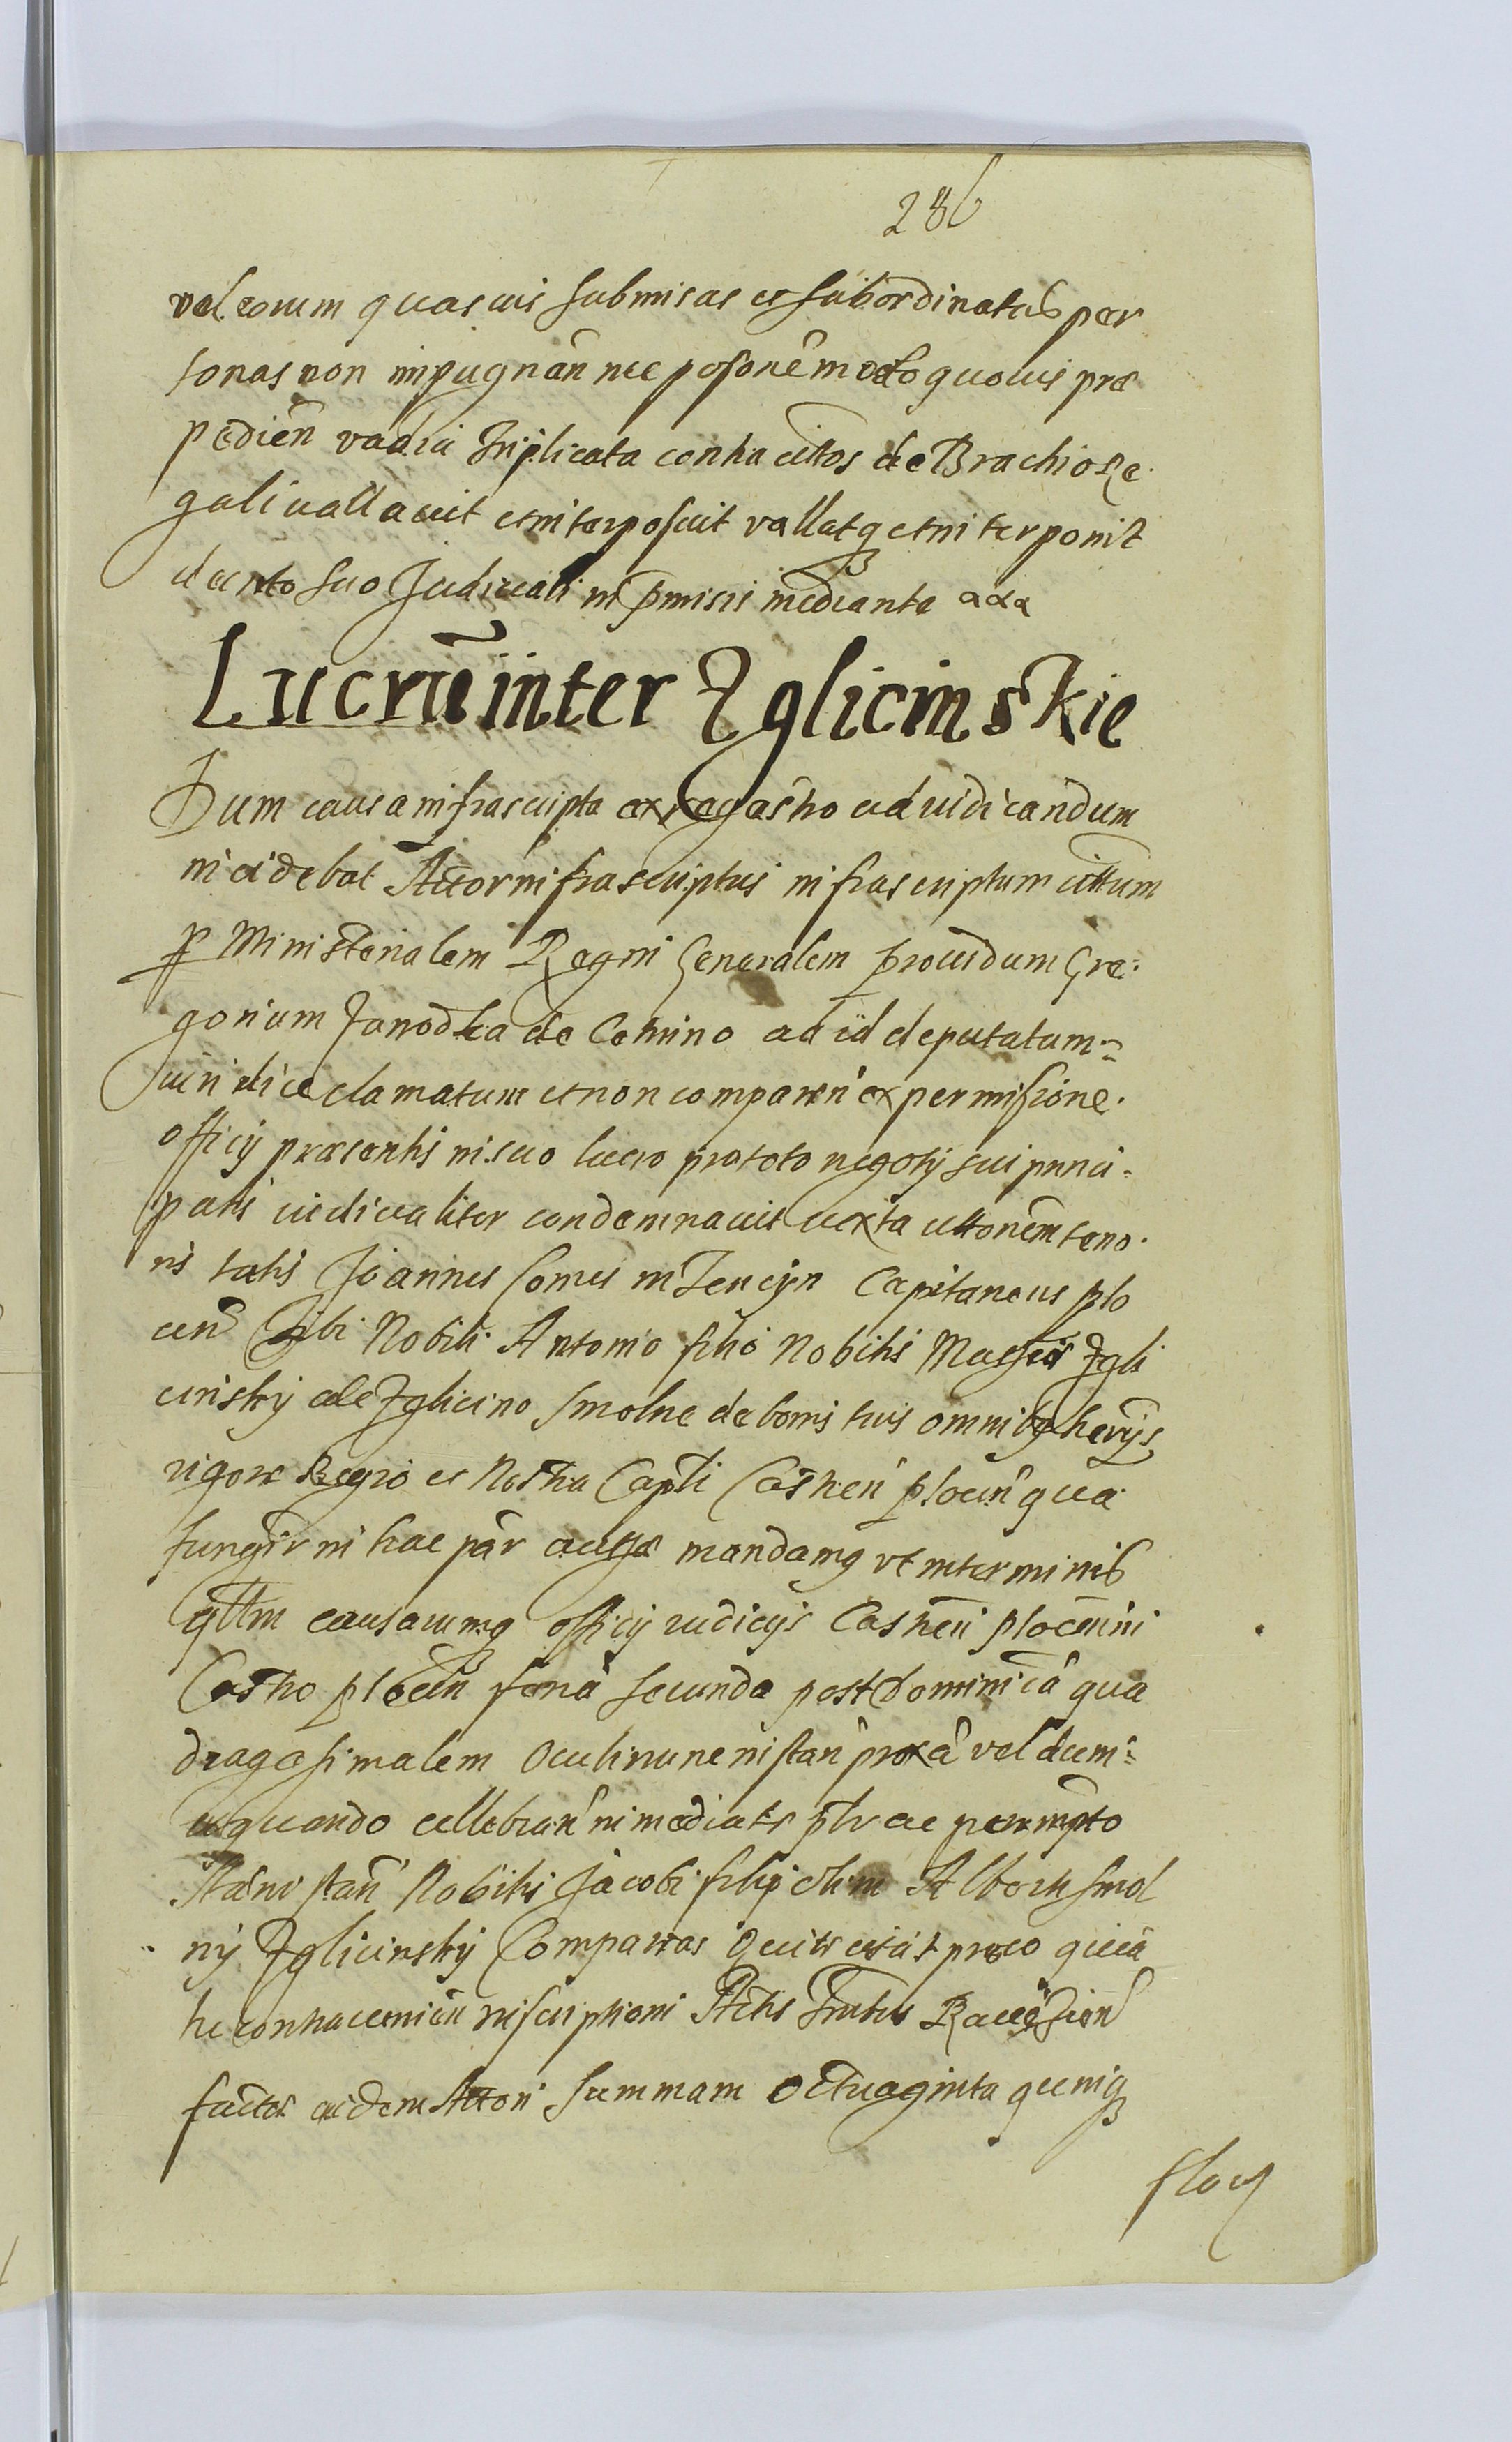 286
vel eorum quasuis submisas et subordinatas per
sonas non impugnan nec possonem modo quouis prae
pedien vadia Triplicata contra cittos de Brachio Re
gali vallauit et interposuit vallatq et interponit
decreto suo Judiciali in pmisis mediante
Lucrũ inter Zglicinskie
Dum causa infrascripta ex regestro ad iudicandum
incidebat Actor infrascriptus infrascriptum cittum
p Ministerialem Regni Generalem prouidum Gre
gorium Janodka de Cetnino ad id deputatum
iuridice clamatum et non comparen ex permissione
officij praesentis in suo lucro pro toto negotij sui princi
palis iudicialiter condemnauit iuxta cittonem teno
ris talis Joannes Comes in Tencijn Capitaneus plo
cen Tibi Nobili Antonio filio Nobilis Zgli
cinskij de Zglicino Smolne de bonis tuis omnibq
rigore Regio et Nostra Capti Castren plocen qua
fungir in hac par mandamq vt in terminis
qttm causarumq officij iudicijs Castren plocen in
Castro plocen feria secunda post Dominica qua
dragesimalem Oculi nunc instan proxa vel dum
quando cellebran inmediate ptr ac perempto
instan Nobilis Jacobi filij olim Alberti Smol
nij Zglicinskij Compareas Qui te citat pro eo quia
te contra inscriptioni Actis
factae eidem Actori summam Octuaginta quinq
floq